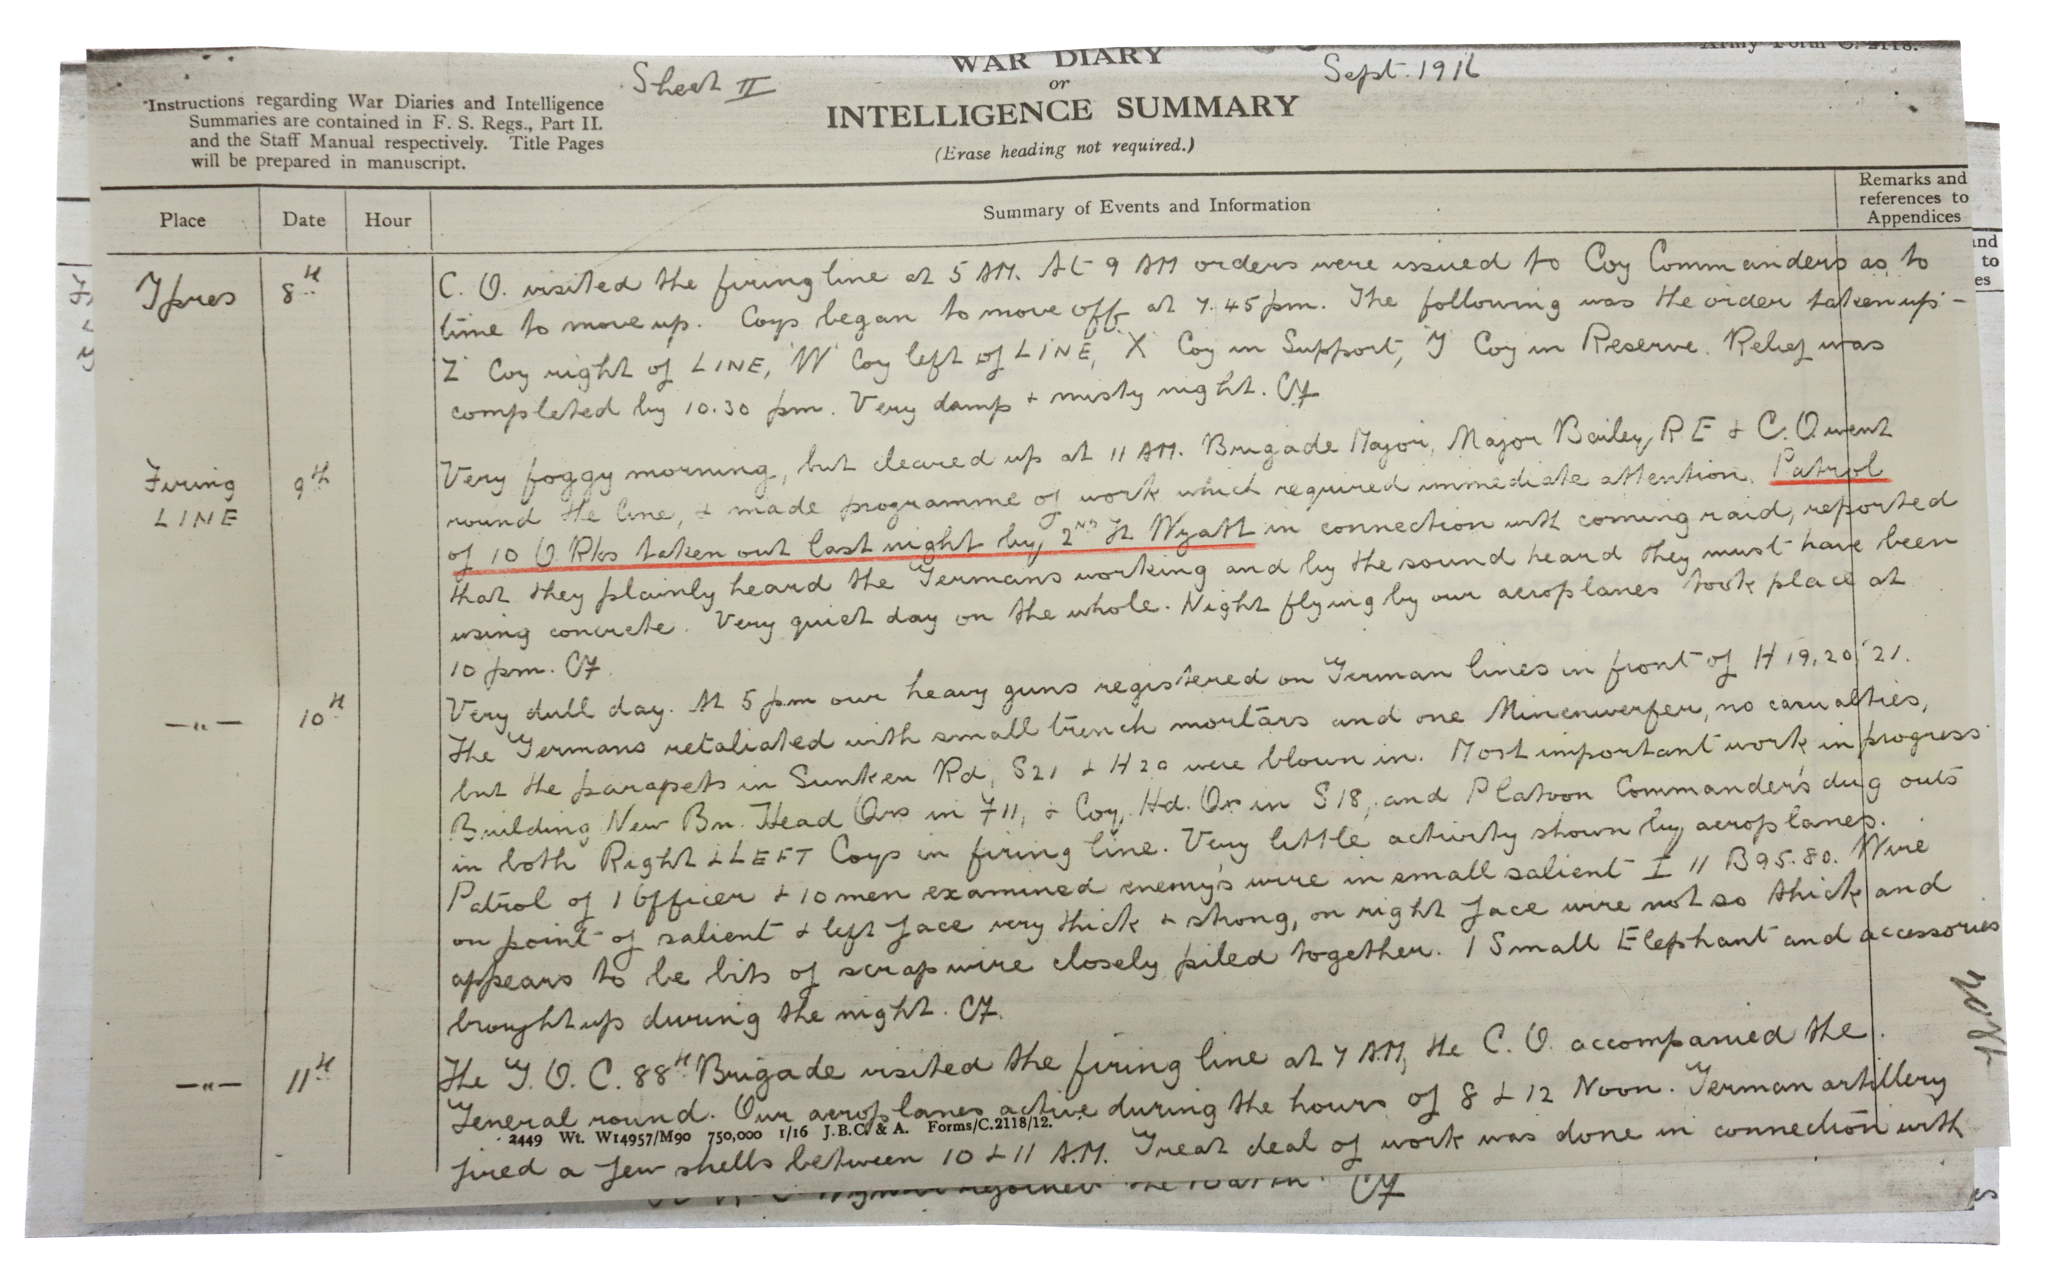 Army Form C. 2118.
Sheet II
WAR DIARY
Sept. 1916
or
INTELLIGENCE SUMMARY
(Erase heading not required.)
Instructions regarding War Diaries and Intelligence
Summaries are contained in F. S. Regs., Part II.
and the Staff Manual respectively. Title Pages
will be prepared in manuscript.
Place Date Hour Summary of Events and Information
Remarks and
references to
Appendices
Ypres 8th C. O. visited the firing line at 5 AM. At 9 AM orders were issued to Coy Commanders as to
time to move up. Coys began to move off at 7.45 pm. The following was the order taken up -
Z Coy right of LINE, W Coy left of LINE, X Coy in Support, Y Coy in Reserve. Relief was
completed by 10.30 pm. Very damp + misty night. CF
Firing LINE 9th Very foggy morning, but cleared up at 11 AM. Brigade Major, Major Bailey, R E + C. O. went
round the line, + made programme of work which required immediate attention. Patrol
of 10 O Rks taken out last night by 2nd Lt Wyatt in connection with coming raid, reported
that they plainly heard the Germans working and by the sound heard they must have been
using concrete. Very quiet day on the whole. Night flying by our aeroplanes took place at
10 pm. CF.
—"— 10th Very dull day. At 5 pm our heavy guns registered on German lines in front of H 19, 20, 21.
The Germans retaliated with small trench mortars and one Minenwerfer, no casualties,
but the parapets in Sunken Rd, S21 + H20 were blown in. Most important work in progress
Building New Bn. Head Qrs in F11, + Coy. Hd. Qrs in S18, and Platoon Commander's dug outs
in both Right + LEFT Coys in firing line. Very little activity shown by aeroplanes.
Patrol of 1 Officer + 10 men examined enemy's wire in small salient I 11 B 95.80. Wire
on point of salient + left face very thick + strong, on right face wire not so thick and
appears to be bits of scrap wire closely piled together. 1 Small Elephant and accessories
brought up during the night. CF.
—"— 11th The G. O. C. 88th Brigade visited the firing line at 7 AM, the C. O. accompanied the
General round. Our aeroplanes active during the hours of 8 + 12 Noon. German artillery
2449 Wt. W14957/M90 750,000 1/16 J.B.C. & A. Forms/C.2118/12.
fired a few shells between 10 + 11 A.M. Great deal of work was done in connection with
CF